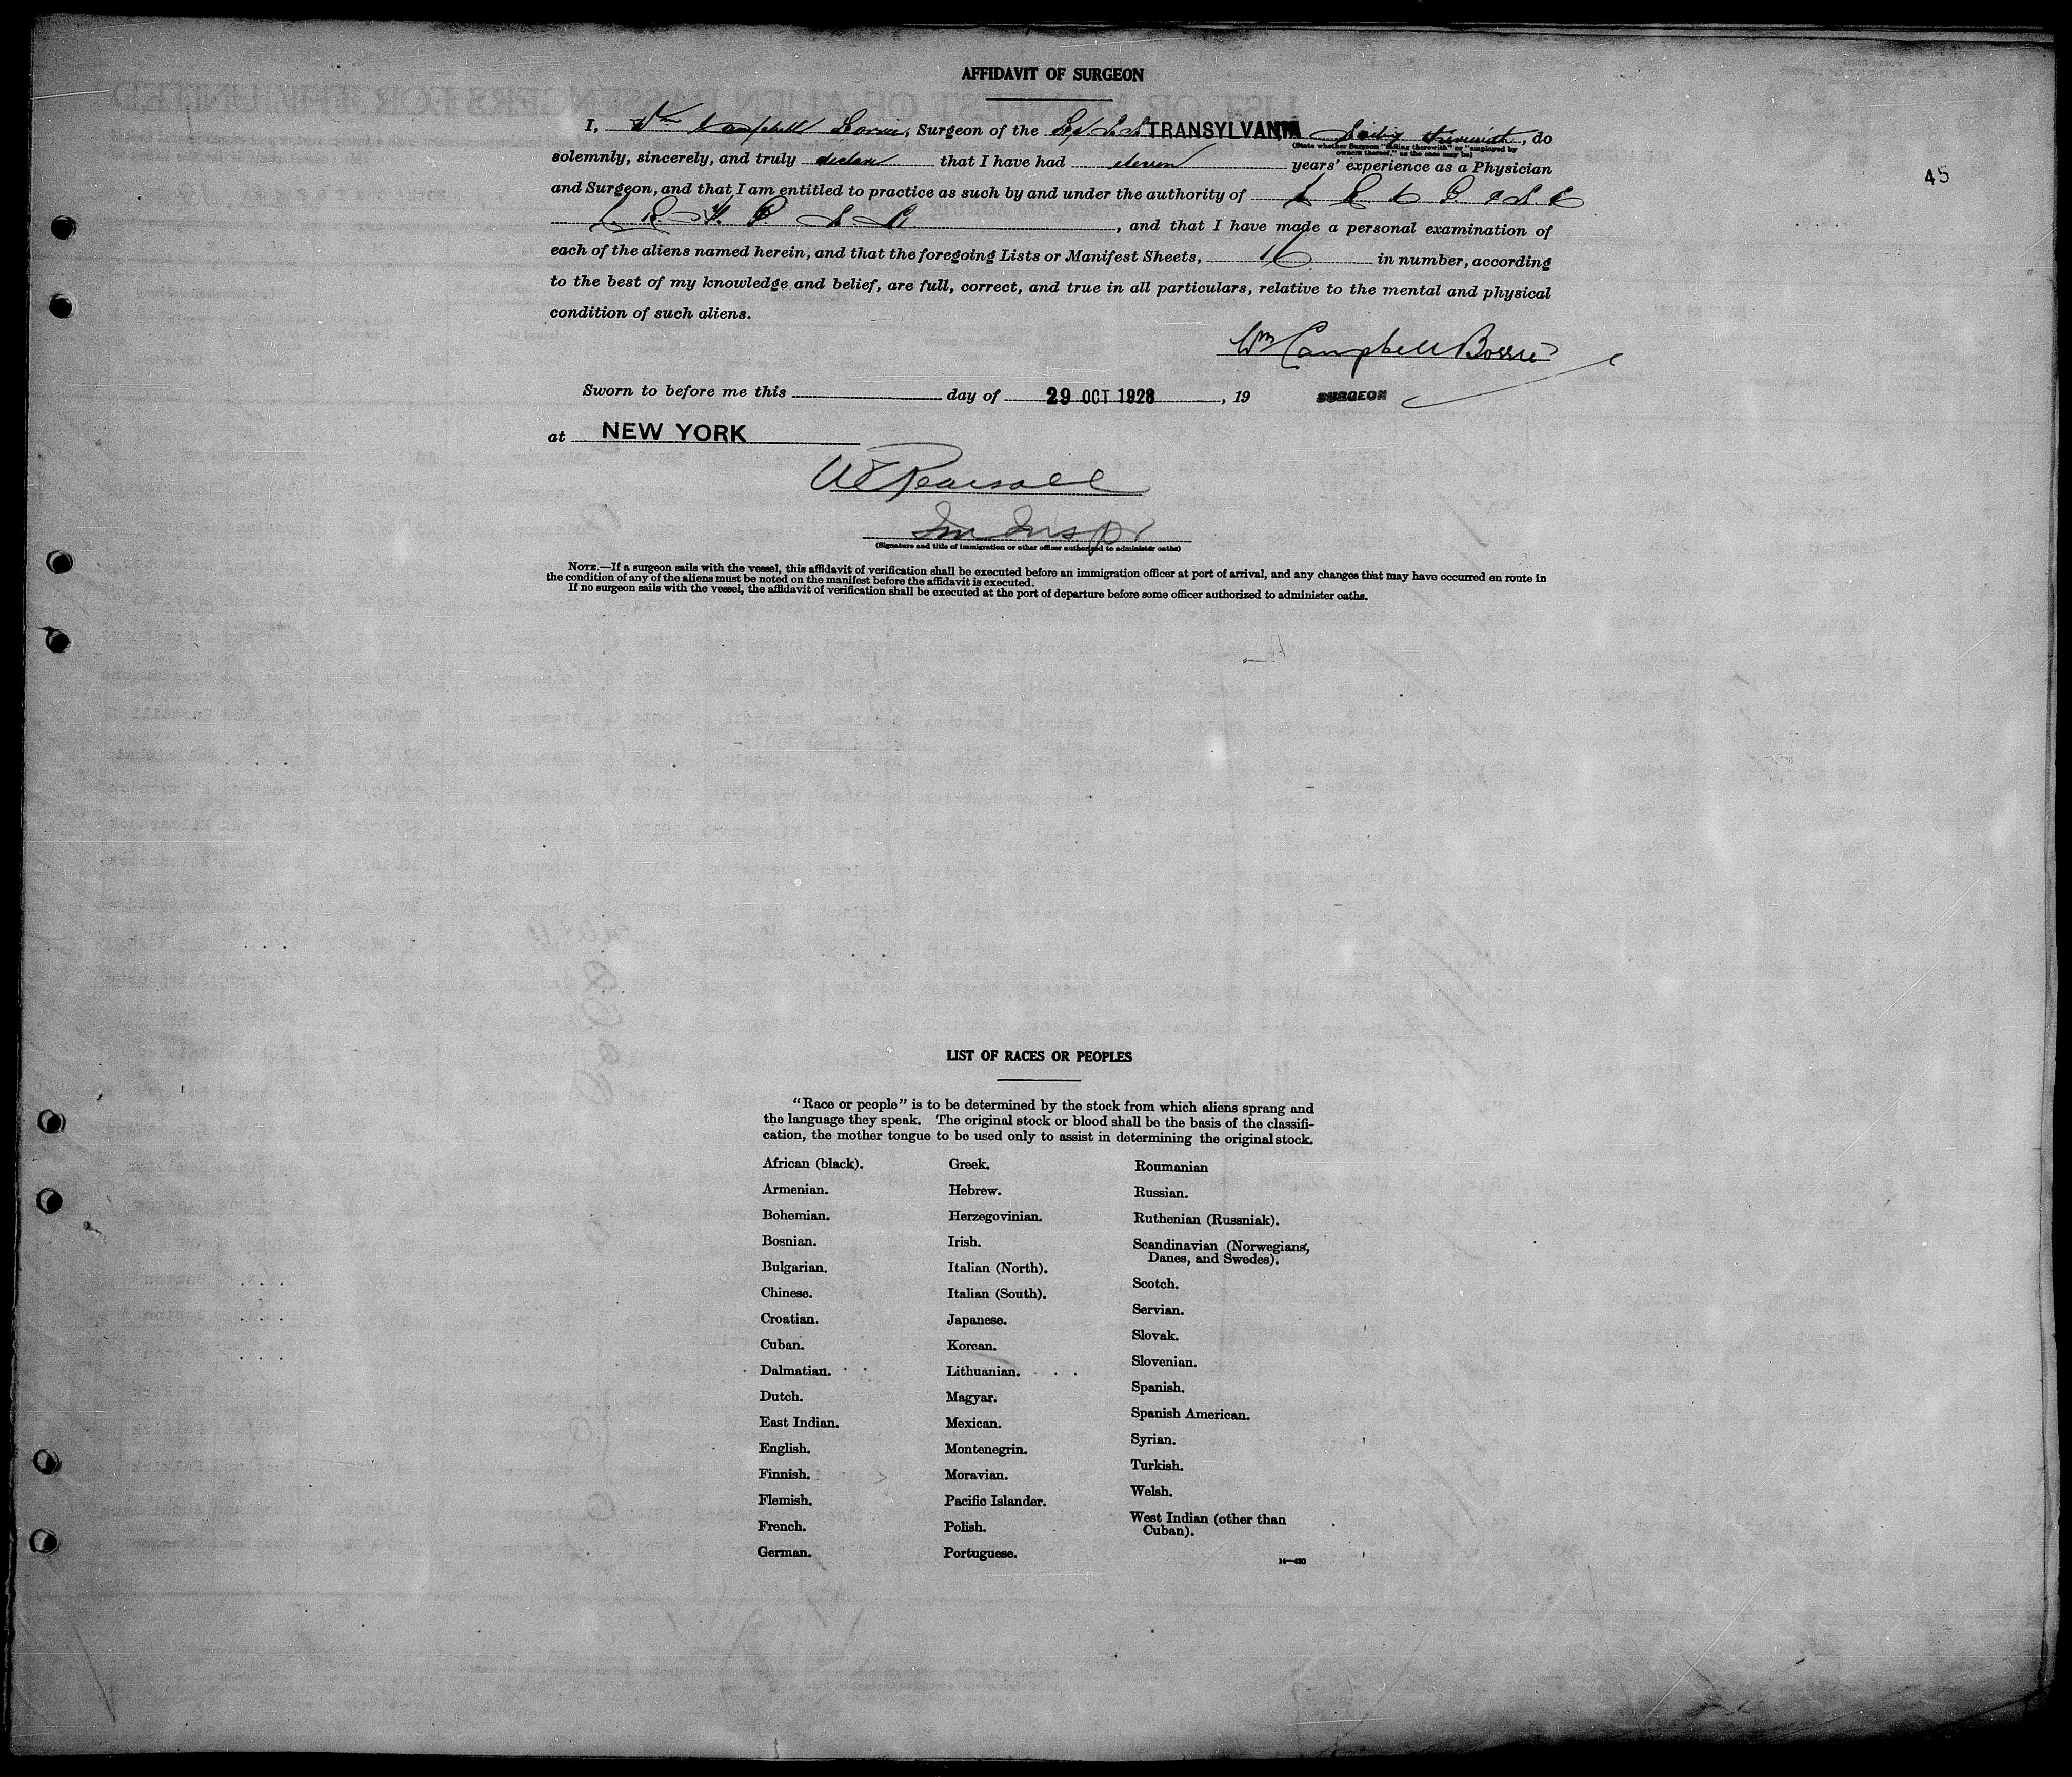 AFFIDAVIT OF SURGEON
45
I, Wm Campbell, Surgeon of the TRANSYLVANIA Sailing therewith, do
(State whether Surgeon "sailing therewith" or "employed by
owners thereof," as the case may be)
solemnly, sincerely, and truly declare that I have had eleven years' experience as a Physician
and Surgeon, and that I am entitled to practice as such by and under the authority of
, and that I have made a personal examination of
each of the aliens named herein, and that the foregoing Lists or Manifest Sheets, 16 in number, according
to the best of my knowledge and belief, are full, correct, and true in all particulars, relative to the mental and physical
condition of such aliens.
Wm Campbell
Sworn to before me this day of 29 OCT 1928, 19 SURGEON
at NEW YORK
W E Pearsall
Im Inspr
(Signature and title of immigration or other officer authorized to administer oaths)
NOTE.—If a surgeon sails with the vessel, this affidavit of verification shall be executed before an immigration officer at port of arrival, and any changes that may have occurred en route in
the condition of any of the aliens must be noted on the manifest before the affidavit is executed.
If no surgeon sails with the vessel, the affidavit of verification shall be executed at the port of departure before some officer authorized to administer oaths.
LIST OF RACES OR PEOPLES
"Race or people" is to be determined by the stock from which aliens sprang and
the language they speak. The original stock or blood shall be the basis of the classifi-
cation, the mother tongue to be used only to assist in determining the original stock.
African (black).
Armenian.
Bohemian.
Bosnian.
Bulgarian.
Chinese.
Croatian.
Cuban.
Dalmatian.
Dutch.
East Indian.
English.
Finnish.
Flemish.
French.
German.
Greek.
Hebrew.
Herzegovinian.
Irish.
Italian (North).
Italian (South).
Japanese.
Korean.
Lithuanian.
Magyar.
Mexican.
Montenegrin.
Moravian.
Pacific Islander.
Polish.
Portuguese.
Roumanian
Russian.
Ruthenian (Russniak).
Scandinavian (Norwegians,
Danes, and Swedes).
Scotch.
Servian.
Slovak.
Slovenian.
Spanish.
Spanish American.
Syrian.
Turkish.
Welsh.
West Indian (other than
Cuban).